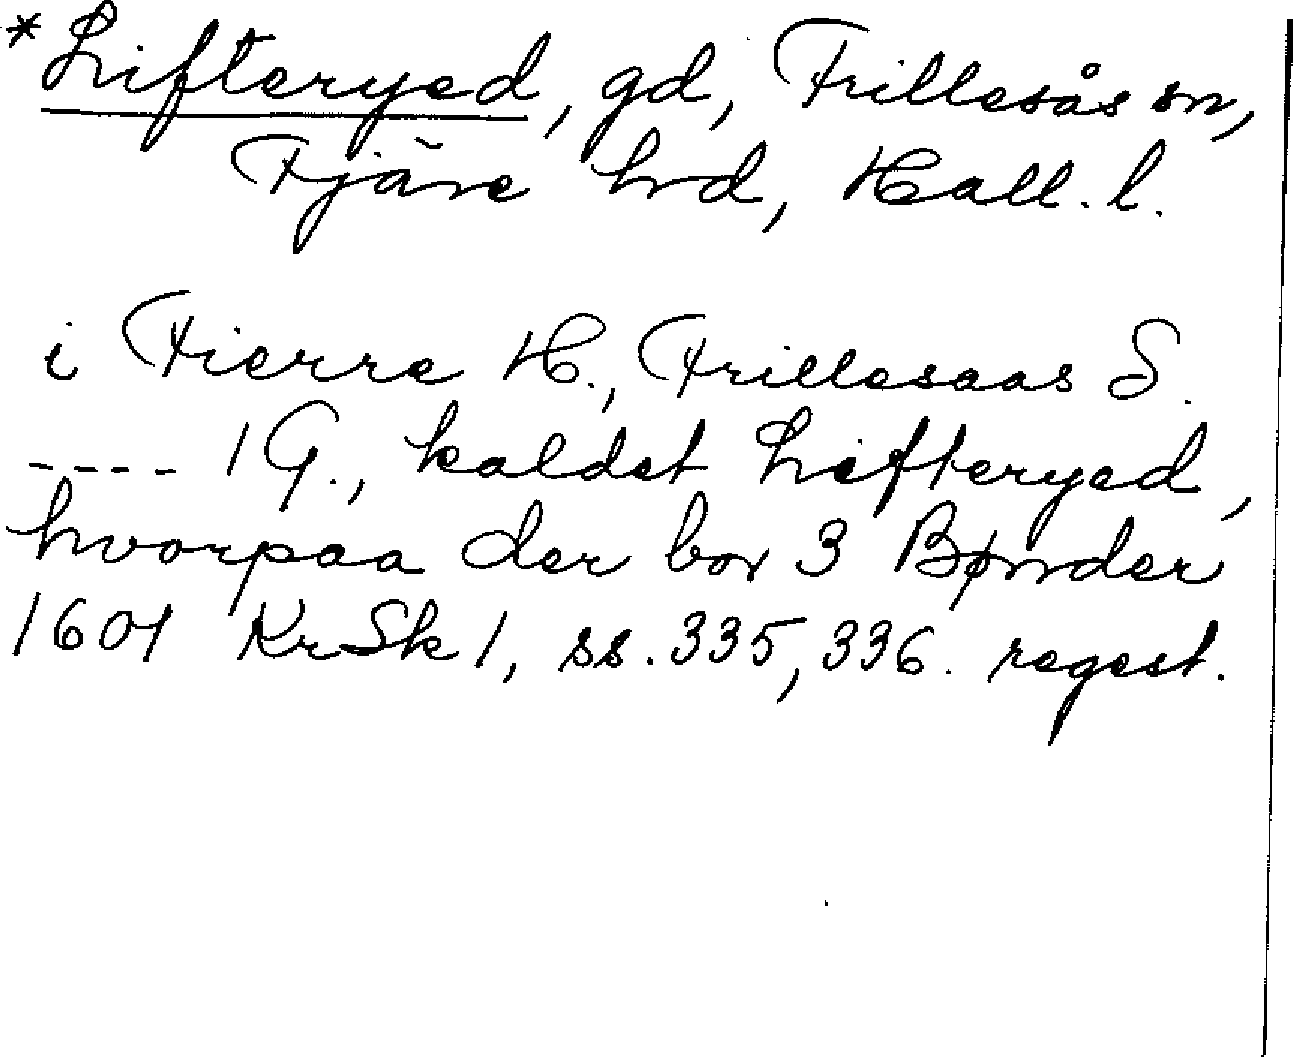 * Lifteryed, gd, Frillesås sn,
Fjäre hd, Hall. l.
i Fierre H., Frillesaas S.
---- 1 G., kaldet Lifteryed,
hvorpaa der bor 3 Bønder
1601 KrSk 1, ss. 335, 336. regest.